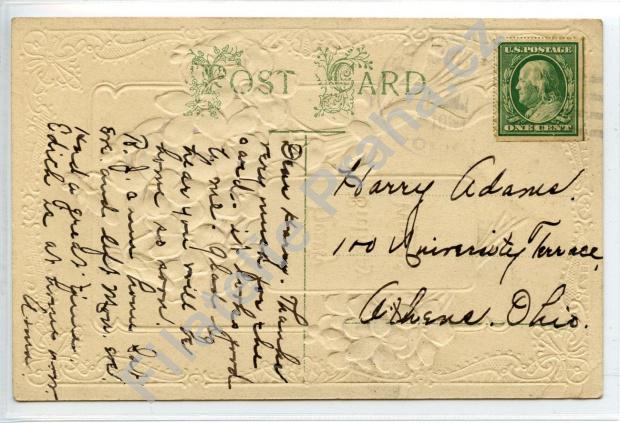 POST CARD
U.S. POSTAGE
ONE CENT
Dear Harry. Thanks
very much for the
card. it looks good
to me. Glad to
hear you will be
home so soon.
B. J. came home Sat
eve. and left Mon. eve.
Had a great time.
Edith is at home now
Harry Adams.
100 University Terrace,
Athens. Ohio.
Filatelie Praha.cz